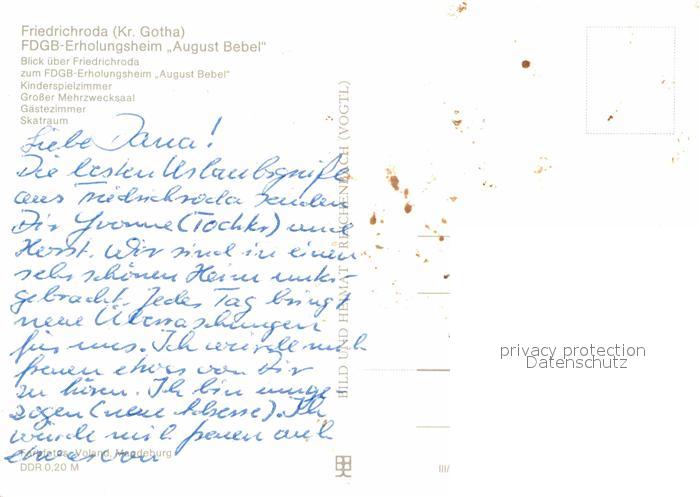 Friedrichroda (Kr. Gotha)
FDGB-Erholungsheim „August Bebel"
Blick über Friedrichroda
zum FDGB-Erholungsheim „August Bebel"
Kinderspielzimmer
Großer Mehrzwecksaal
Gästezimmer
Skatraum
Liebe Dana!
Die besten Urlaubsgrüße
aus Friedrichroda senden
Dir Yvonne (Tochter) und
Horst. Wir sind in einem
sehr schönen Heim unter-
gebracht. Jedes Tag bringt
neue Überraschungen
für uns. Ich würde mich
freuen etwas von Dir
zu hören. Ich bin umge
zogen (neue Adresse). Ich
würde mich freuen auch
etwas von
Farbfotos: Voland, Magdeburg
DDR 0,20 M
BILD UND HEIMAT REICHENBACH (VOGTL)
III/
privacy protection
Datenschutz